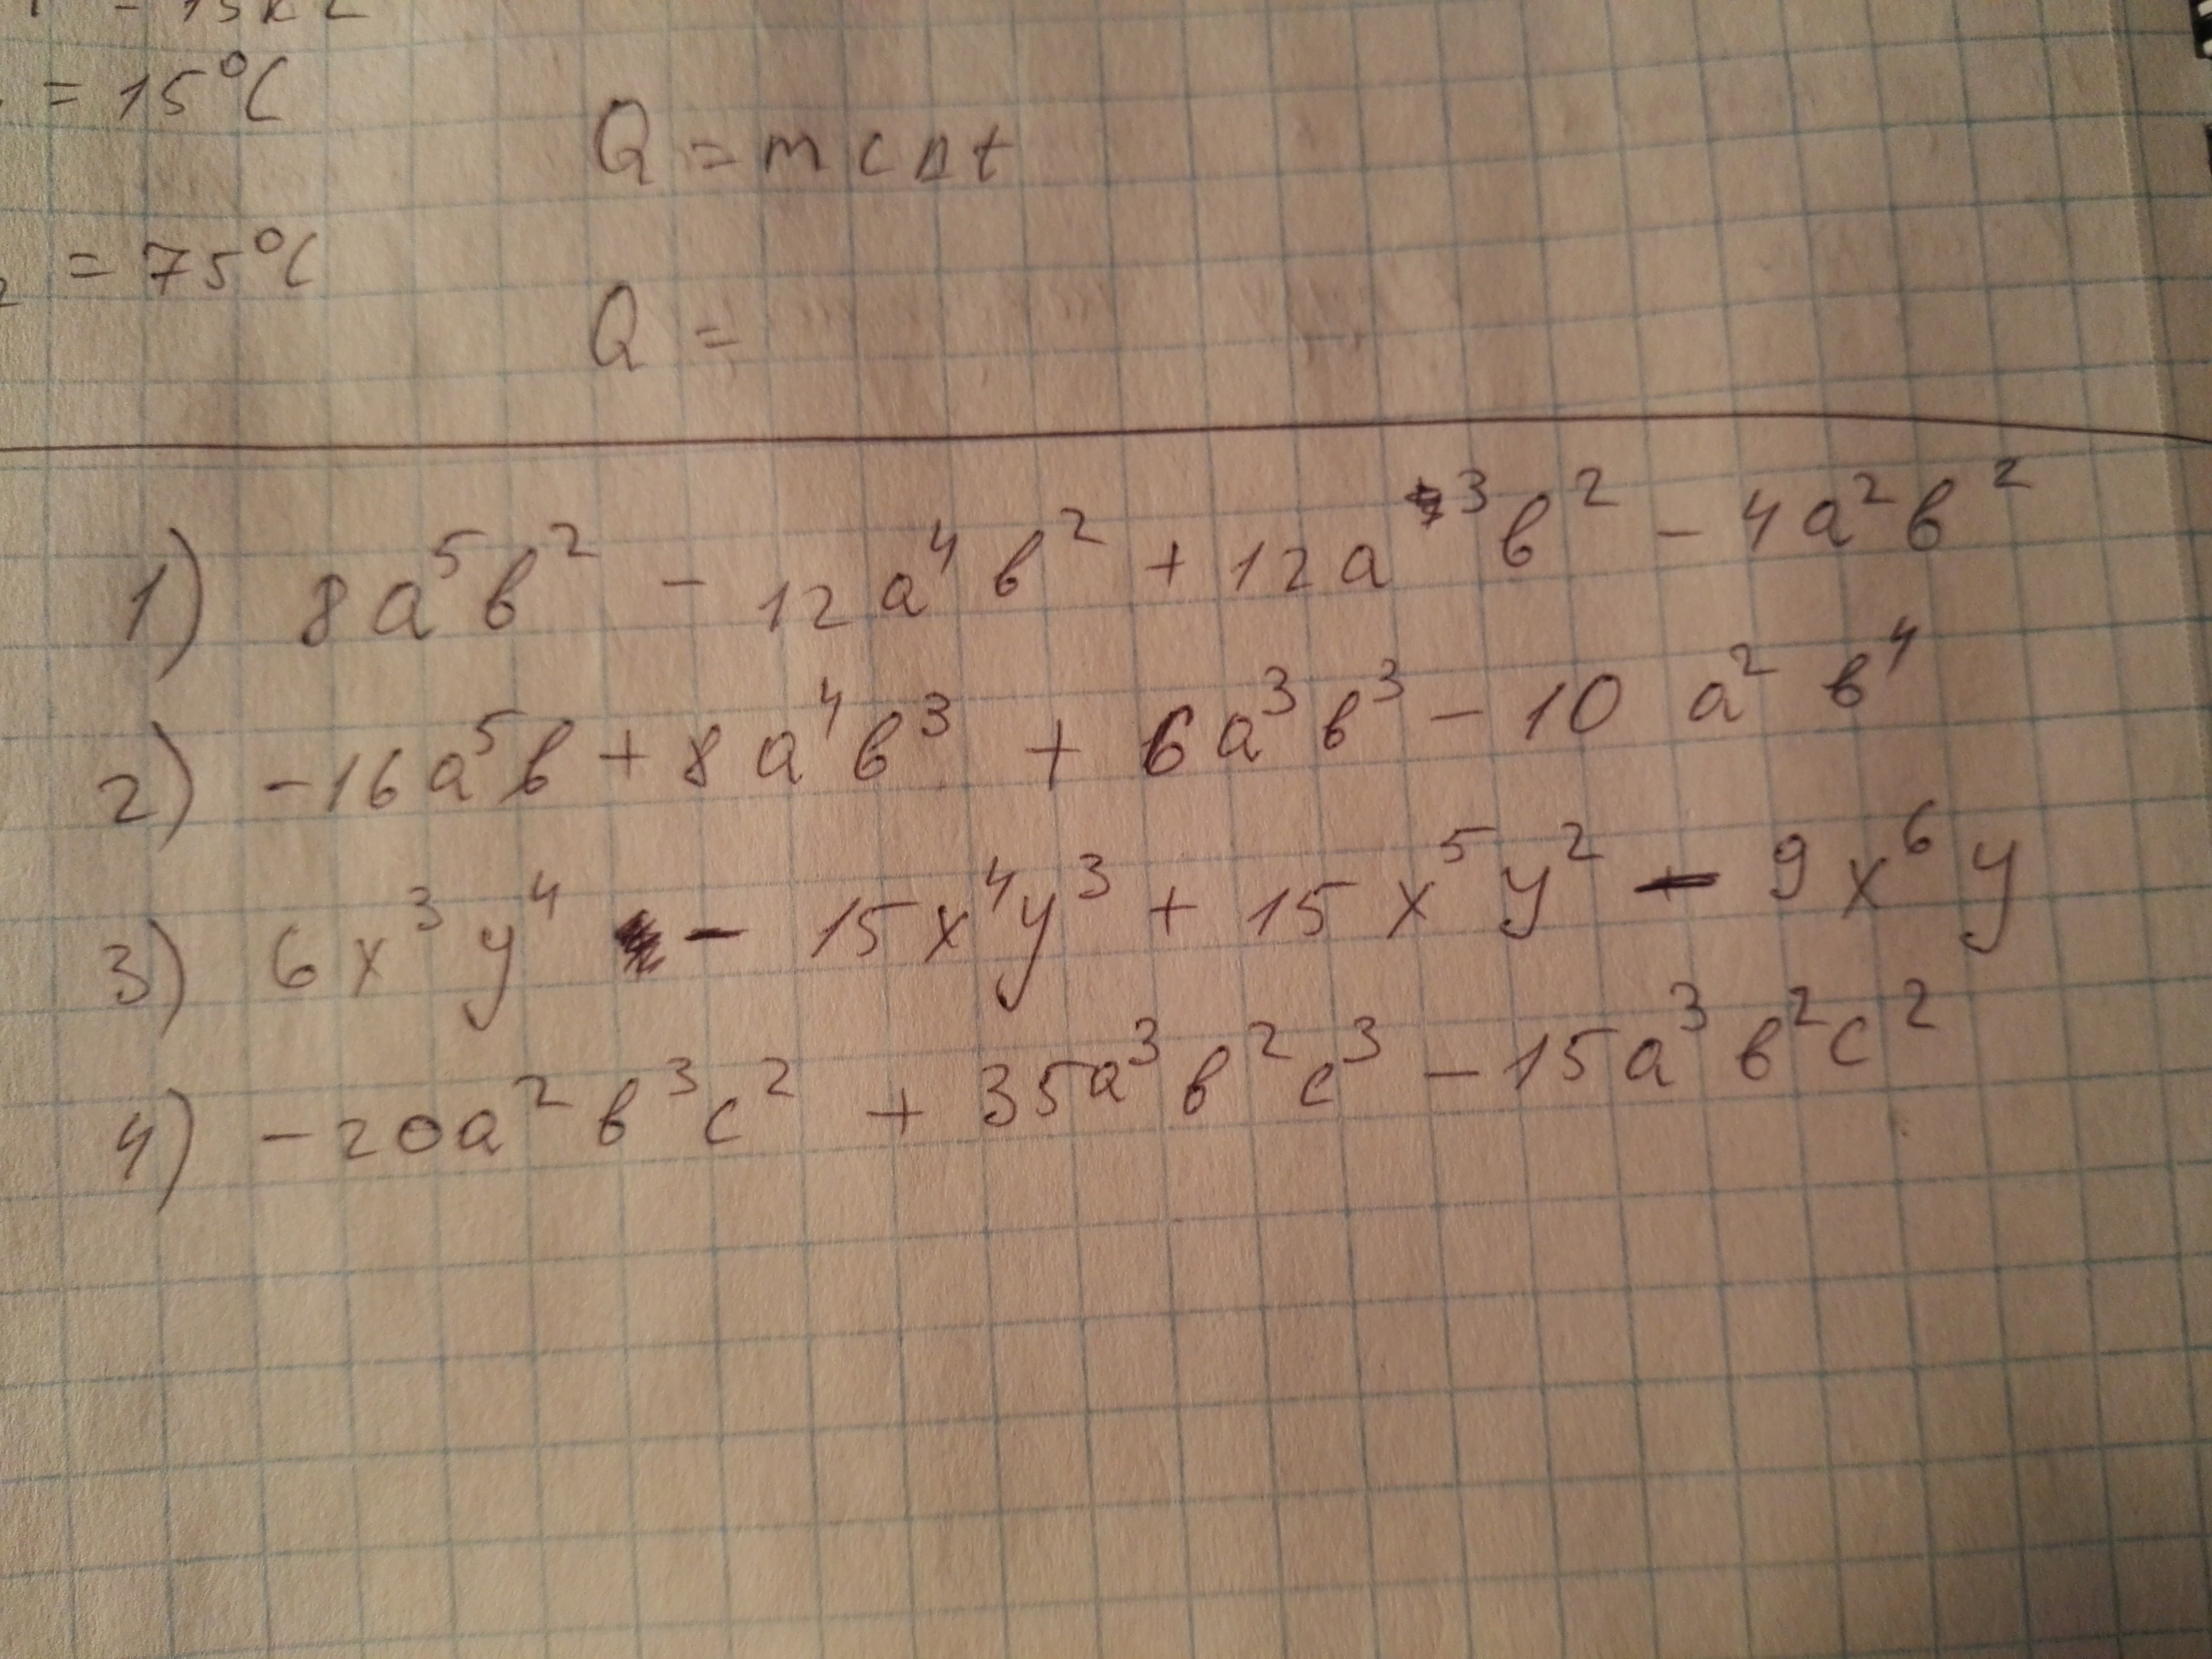 = 15°C
Q = mcΔt
= 75°C
Q =
1) 8a⁵в² - 12a⁴в² + 12a³в² - 4a²в²
2) -16a⁵в + 8a⁴в³ + 6a³в³ - 10 a² в⁴
3) 6x³y⁴ - 15x⁴y³ + 15x⁵y² - 9x⁶y
4) -20a²в³c² + 35a³в²c³ - 15a³в²c²